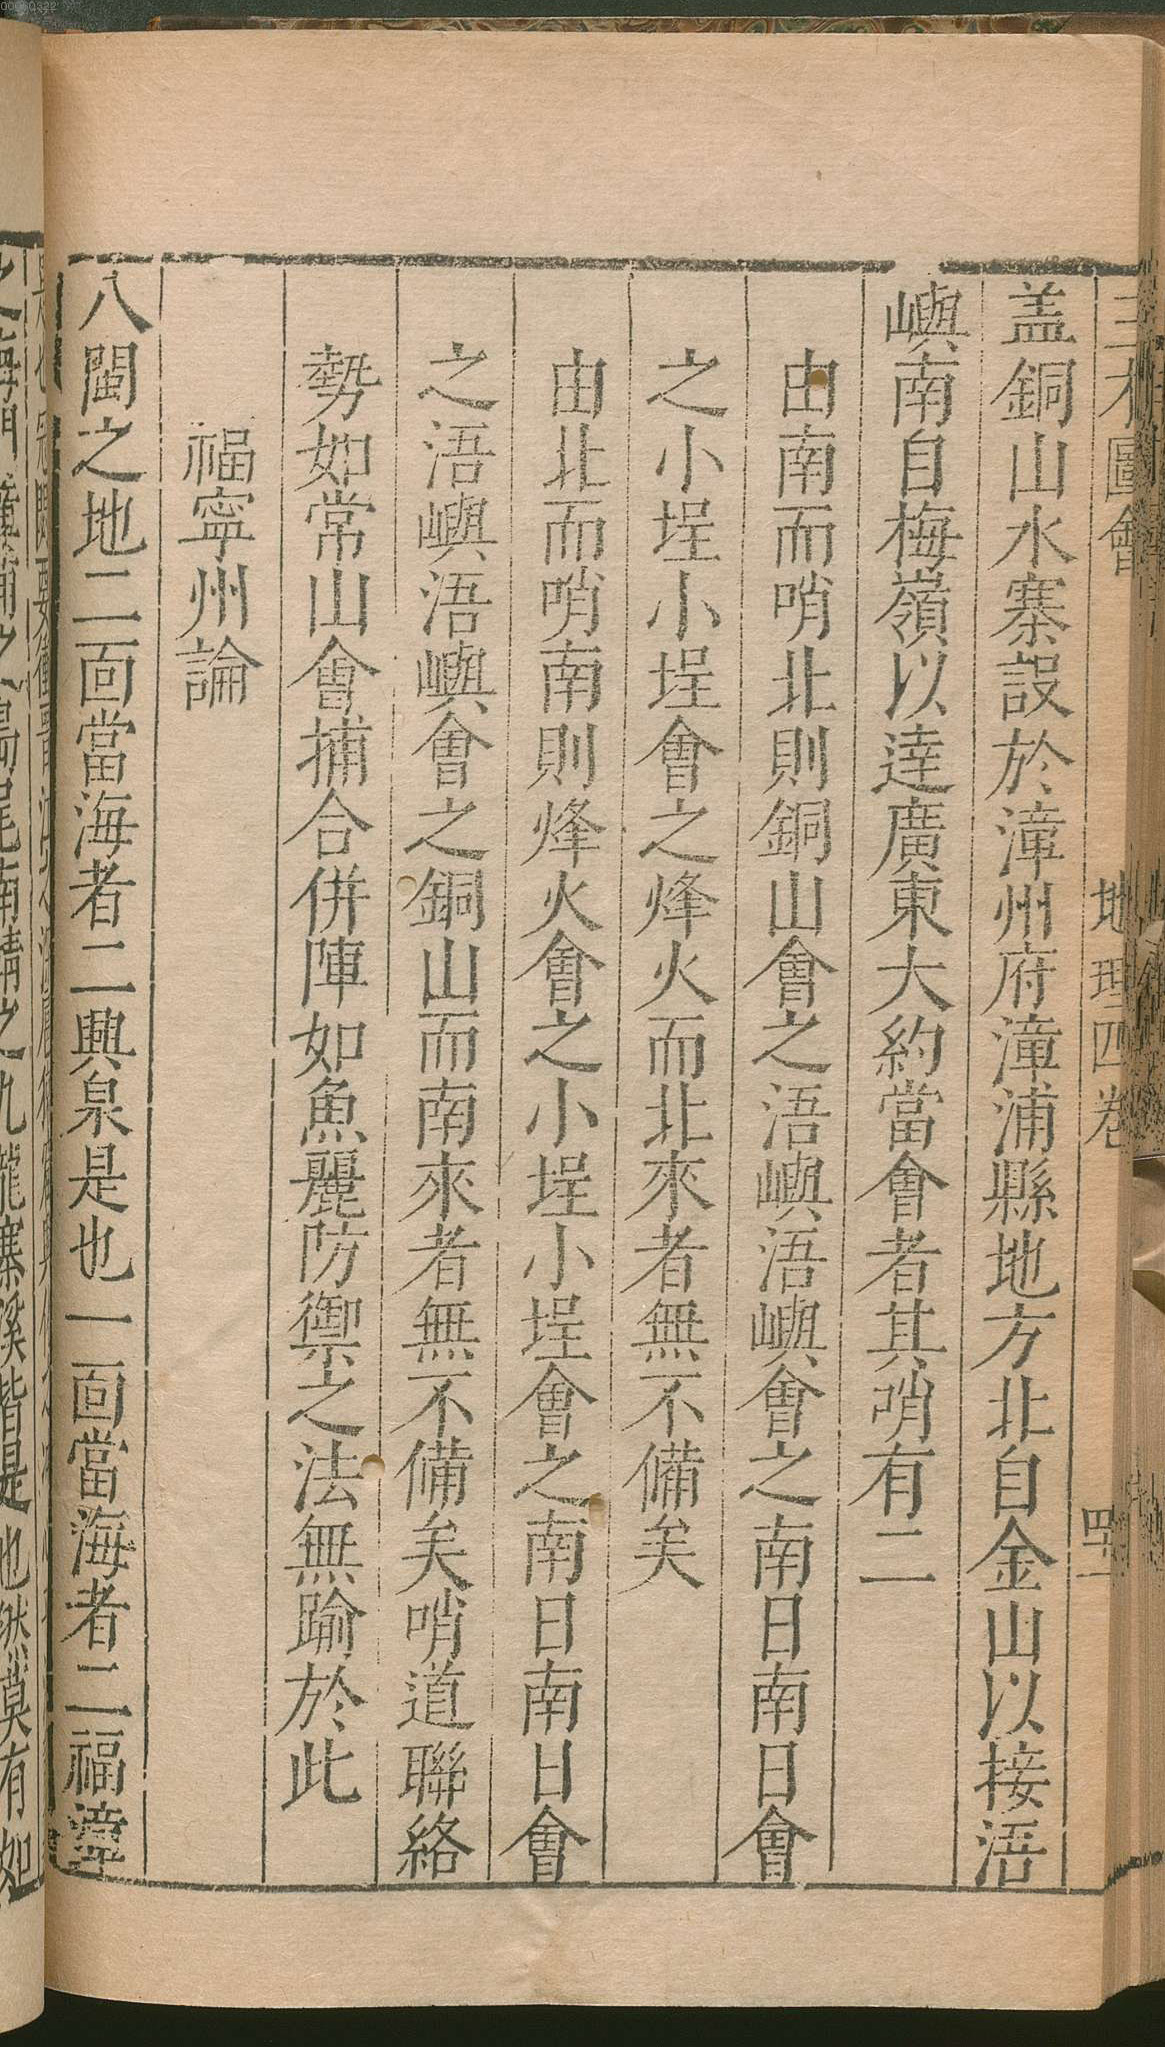 三才圖會 地理四卷
蓋銅山水寨設於漳州府漳浦縣地方北自金山以接浯
嶼南自梅嶺以達廣東大約當會者其哨有二
由南而哨北則銅山會之浯嶼浯嶼會之南日南日會
之小埕小埕會之烽火而北來者無不備矣
由北而哨南則烽火會之小埕小埕會之南日南日會
之浯嶼浯嶼會之銅山而南來者無不備矣哨道聯絡
勢如常山會捕合併陣如魚麗防禦之法無踰於此
福寧州論
八閩之地二面當海者二興泉是也一面當海者二福漳
之海門漳浦之島尾南靖之九龍寨溪皆是也然莫有如
00000322